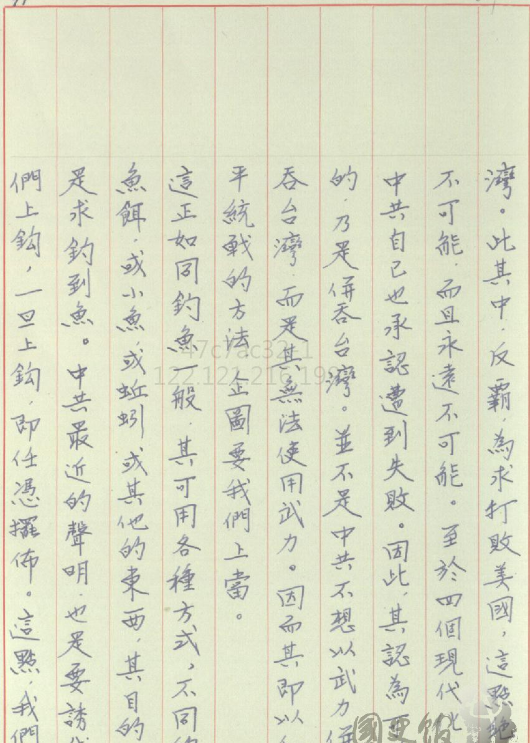 灣。此其中，反霸，為求打敗美國，這點絕
不可能，而且永遠不可能。至於四個現代化
中共自己也承認遭到失敗。因此，其認為
的，乃是併吞台灣。並不是中共不想以武力併
吞台灣，而是其無法使用武力。因而其即以
平統戰的方法，企圖要我們上當。
這正如同釣魚一般，其可用各種方式，不同的
魚餌，或小魚，或蚯蚓，或其他的東西，其目的
是求釣到魚。中共最近的聲明，也是要誘
們上鈎，一旦上鈎，即任憑擺佈。這點，我們
國史館